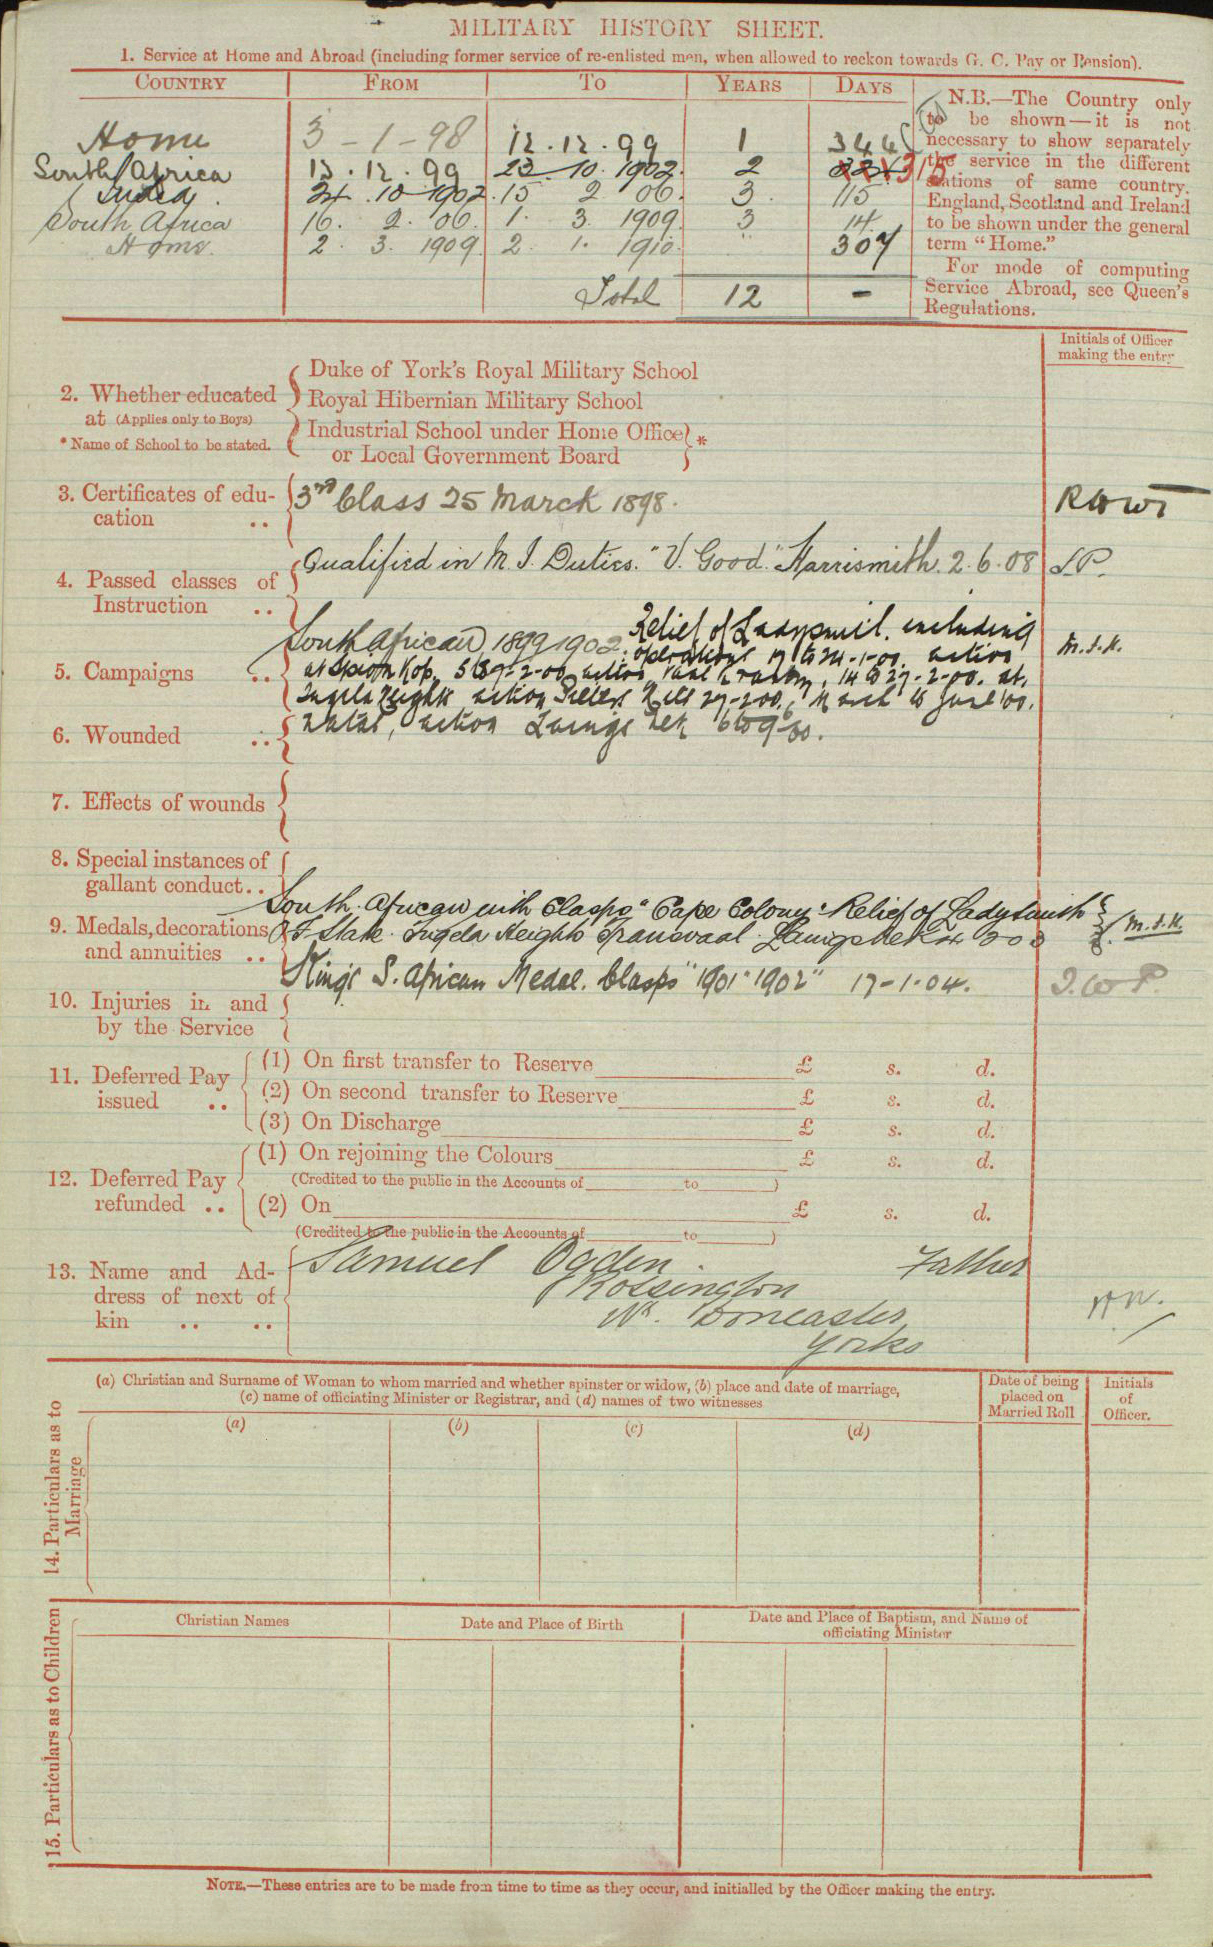 MILITARY HISTORY SHEET.
1. Service at Home and Abroad (including former service of re-enlisted men, when allowed to reckon towards G. C. Pay or Pension).
COUNTRY FROM TO YEARS DAYS
Home 3-1-98 12.12.99 1 344
South Africa 13.12.99 23.10.1902. 2 315
India. 24.10-1902. 15 2 06. 3. 115
South Africa 16. 2. 06. 1. 3. 1909. 3 14.
Home. 2. 3. 1909. 2. 1. 1910. 307
Total 12 -
N.B.—The Country only
to be shown—it is not
necessary to show separately
the service in the different
stations of same country.
England, Scotland and Ireland
to be shown under the general
term “Home.”
For mode of computing
Service Abroad, see Queen's
Regulations.
Initials of Officer
making the entry
2. Whether educated
at (Applies only to Boys)
* Name of School to be stated.
Duke of York's Royal Military School
Royal Hibernian Military School
Industrial School under Home Office
or Local Government Board *
3. Certificates of edu-
cation ..
3rd Class 25 March 1898.
4. Passed classes of
Instruction ..
Qualified in M. I. Duties. "V. Good." Harrismith. 2.6.08
5. Campaigns ..
South African 1899 1902. Relief of Ladysmith. including
operations 17 to 24-1-00. action
at Spion Kop. 5 to 7-2-00 action Vaal Kranz, 14 to 27-2-00. at.
Tugela Heights action Pieters Hill 27-2-00., March to June 00.
Natal, action Laings Nek 6 to 9 6 00.
6. Wounded ..
7. Effects of wounds
8. Special instances of
gallant conduct..
9. Medals, decorations
and annuities ..
South African with Clasps "Cape Colony" Relief of Ladysmith
O F State. Tugela Heights Transvaal. Laings Nek
M.I.K.
Kings S. African Medal. Clasps "1901" 1902" 17-1-04.
10. Injuries in and
by the Service
11. Deferred Pay
issued ..
(1) On first transfer to Reserve £ s. d.
(2) On second transfer to Reserve £ s. d.
(3) On Discharge £ s. d.
12. Deferred Pay
refunded ..
(1) On rejoining the Colours £ s. d.
(Credited to the public in the Accounts of to )
(2) On £ s. d.
(Credited to the public in the Accounts of to )
13. Name and Ad-
dress of next of
kin .. ..
Samuel Ogden. Father
Rossington
Nr. Doncaster
Yorks
14. Particulars as to
Marriage
(a) Christian and Surname of Woman to whom married and whether spinster or widow, (b) place and date of marriage,
(c) name of officiating Minister or Registrar, and (d) names of two witnesses
Date of being
placed on
Married Roll
Initials
of
Officer.
(a) (b) (c) (d)
15. Particulars as to Children
Christian Names
Date and Place of Birth
Date and Place of Baptism, and Name of
officiating Minister
NOTE.—These entries are to be made from time to time as they occur, and initialled by the Officer making the entry.